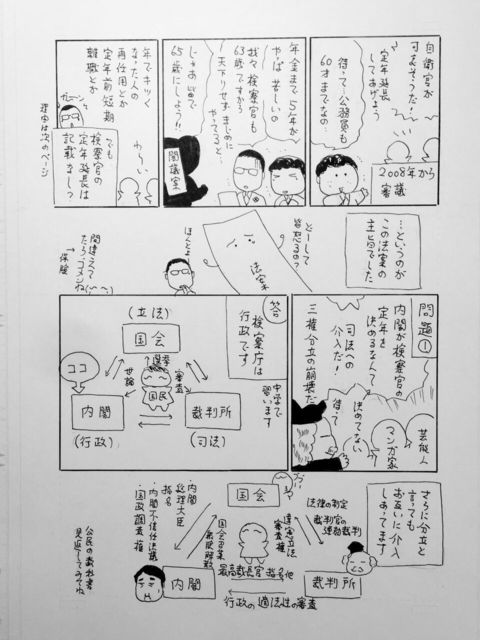 自衛官が
可哀そうだ…
定年延長
してあげよう
待って!公務員も
60才までなの
2008年から
審議
年金まで5年が
やば苦しいの
我々検察官も
63歳ですから
天下りせずまじめに
やってると…
じゃあ皆で
65歳にしよう!!
閣議案
年でキツく
なった人の
再任用とか
定年前短期
離職とか
わーい
でも
検察官の
定年延長は
記載なし?
理由は次のページ
…というのが
この法案の
主旨でした
どーして
皆怒るの?
法案
ほんとよ
間違えてたら
ゴメンね
→保険
問題①
内閣が検察官の
定年を
決めるなんて
司法への
介入だ!
三権分立の崩壊だ
待って
決めてない
芸能人
マンガ家
答
検察庁は
行政です
中学で
習います
(立法)
国会
選挙
世論
審査
国民
ココ
内閣
(行政)
裁判所
(司法)
さらに分立と
言っても
お互いに介入
しあってます
国会
・内閣
総理大臣
指名
・内閣不信任決議
・国政調査権
国会召集
衆院解散
違憲立法
審査権
法律の制定
裁判官の
弾劾裁判
内閣
最高裁長官指名他
裁判所
行政の適法性の審査
公民の教科書
見返してみてね